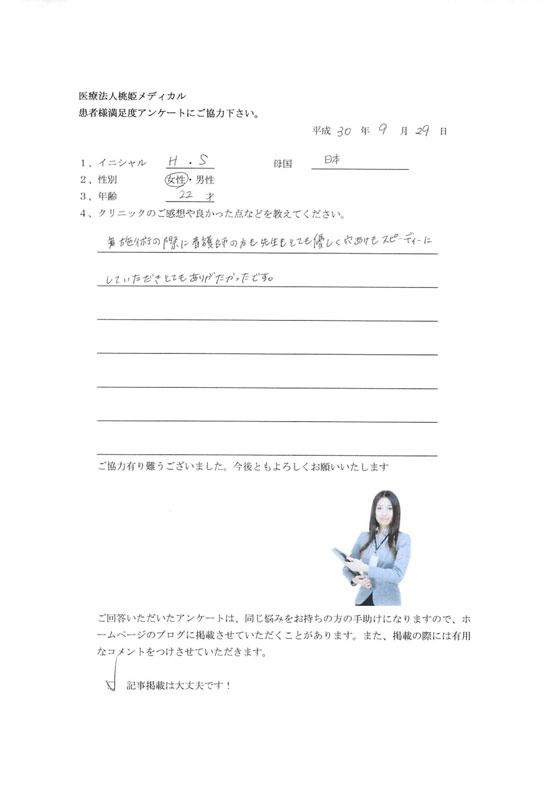 医療法人桃姫メディカル
患者様満足度アンケートにご協力下さい。
平成 30 年 9 月 29 日
1、イニシャル H . S 母国 日本
2、性別 女性・男性
3、年齢 22 才
4、クリニックのご感想や良かった点などを教えてください。
施術の際に看護師の方も先生もとても優しく穴あけもスピーディーに
していただきとてもありがたかったです。
ご協力有り難うございました。今後ともよろしくお願いいたします
ご回答いただいたアンケートは、同じ悩みをお持ちの方の手助けになりますので、ホ
ームページのブログに掲載させていただくことがあります。また、掲載の際には有用
なコメントをつけさせていただきます。
記事掲載は大丈夫です！